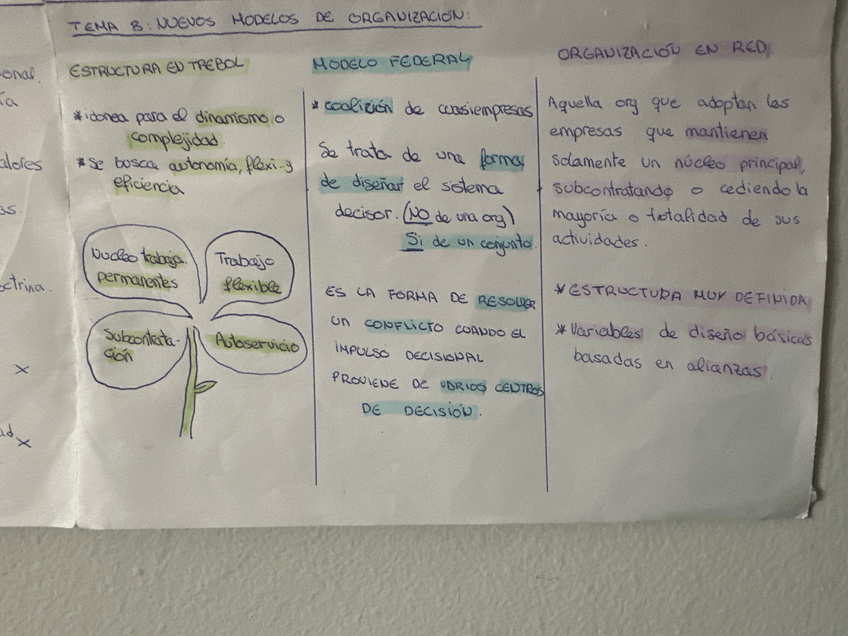 TEMA 8: NUEVOS MODELOS DE ORGANIZACIÓN:
ESTRUCTURA EN TREBOL
* idonea para el dinamismo o
complejidad
* Se busca autonomía, flexi. y
eficiencia
Nucleo trabaja.
permanentes
Trabajo
flexible
Subcontrata-
ción
Autoservicio
MODELO FEDERAL
* coalición de cuasiempresas
Se trata de una forma
de diseñar el sistema
decisor. (NO de una org)
Si de un conjunto
ES LA FORMA DE RESOLVER
UN CONFLICTO CUANDO EL
IMPULSO DECISIONAL
PROVIENE DE VARIOS CENTROS
DE DECISIÓN.
ORGANIZACIÓN EN RED
Aquella org que adoptan las
empresas que mantienen
solamente un núcleo principal,
subcontratando o cediendo la
mayoría o totalidad de sus
actividades.
* ESTRUCTURA MUY DEFINIDA
* Variables de diseño básicas
basadas en alianzas.
onal.
ía
alores
os.
octrina.
x
ad
x